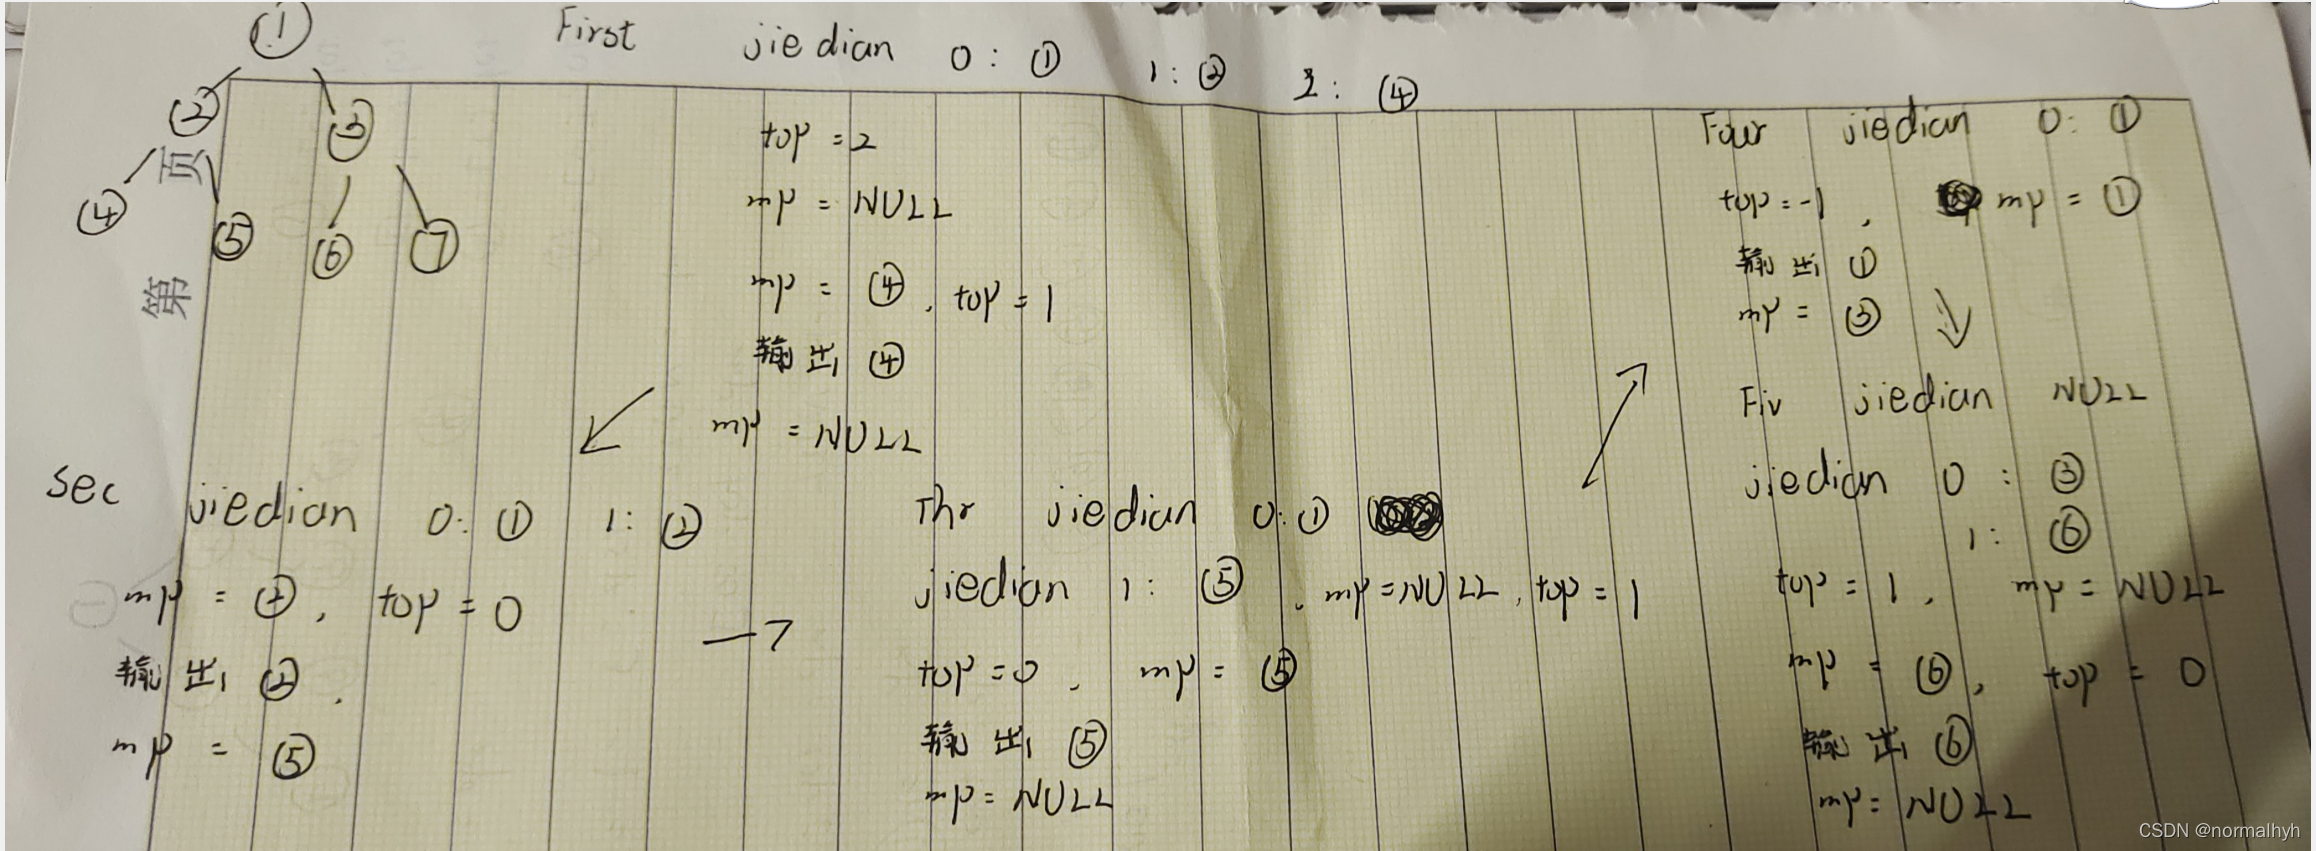 ①
②
③
④
⑤
⑥
⑦
第 页
First jiedian 0: ① 1: ② 2: ④
top = 2
mp = NULL
mp = ④, top = 1
输出 ④
mp = NULL
Sec jiedian 0: ① 1: ②
mp = ②, top = 0
输出 ②.
mp = ⑤
Thr jiedian 0: ①
jiedian 1: ⑤, mp = NULL, top = 1
top = 0, mp = ⑤
输出 ⑤
mp = NULL
Four jiedian 0: ①
top = -1, mp = ①
输出 ①
mp = ③
Fiv jiedian NULL
jiedian 0: ③
1: ⑥
top = 1, mp = NULL
mp = ⑥, top = 0
输出 ⑥
mp = NULL
CSDN @normalhyh